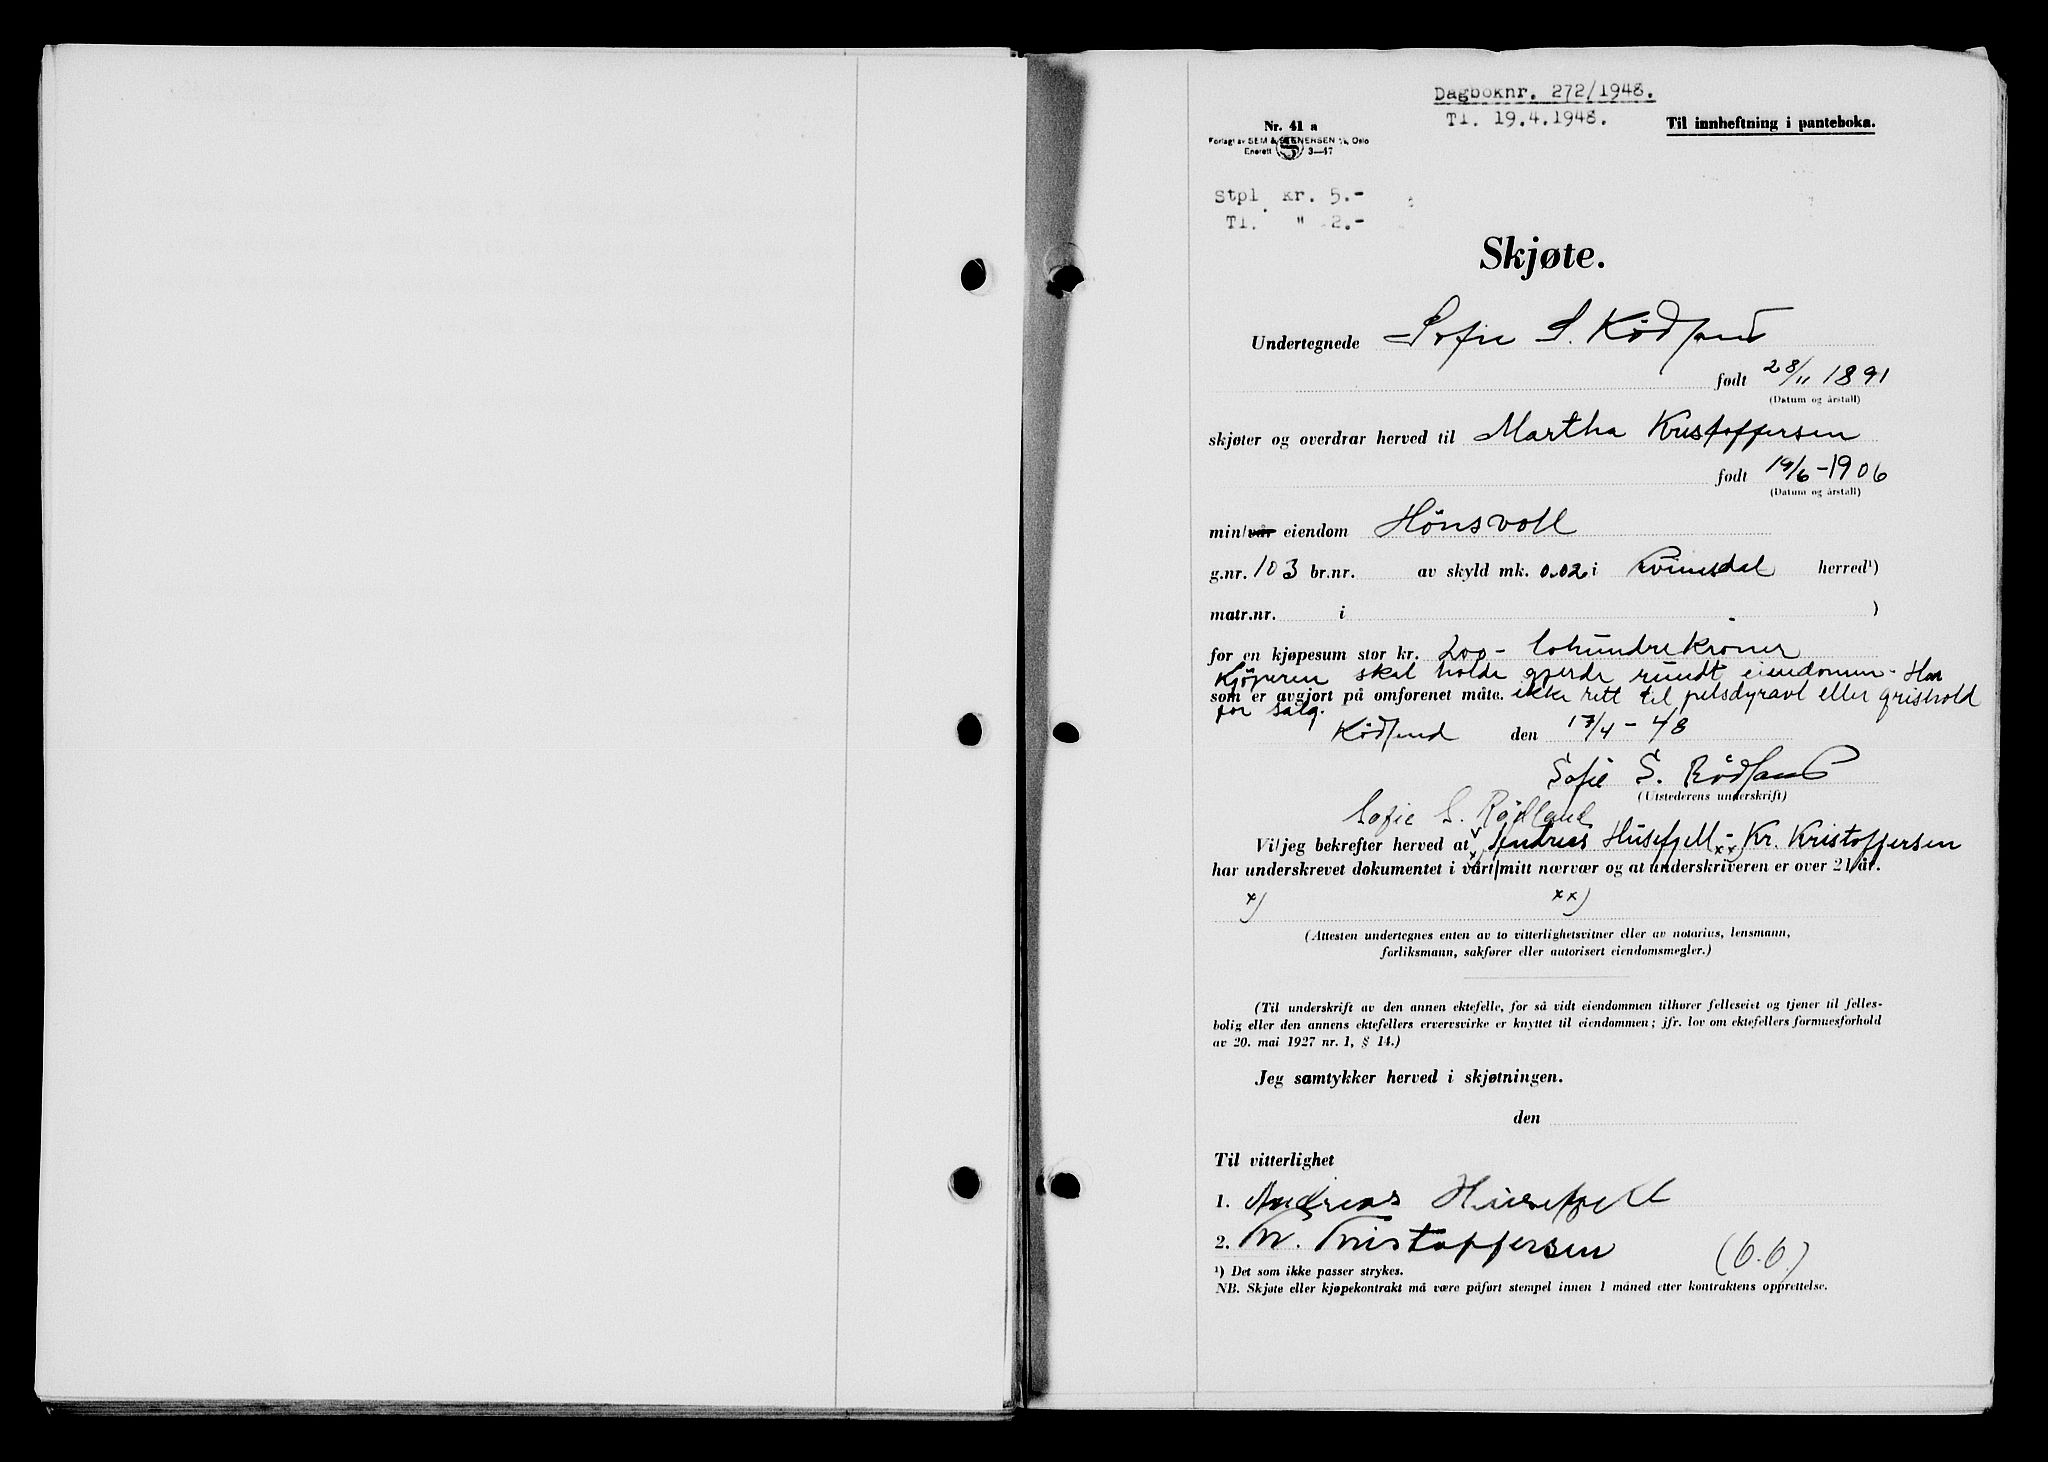 Dagboknr. 272/1948.
Tl. 19.4.1948.
Til innheftning i panteboka.
Nr. 41 a
Forlagt av SEM & STENERSEN A/S, Oslo
Enerett 3—47
Stpl. kr. 5.-
Tl. " 2.-
Skjøte.
Undertegnede Sofie S. Rødland
født 28/11 1891
(Datum og årstall)
skjøter og overdrar herved til Martha Kristoffersen
født 19/6-1906
(Datum og årstall)
min/vår eiendom Hönsvoll
g.nr. 103 br.nr. av skyld mk. 0.02 i Kvinesdal herred¹)
matr.nr. i )
for en kjøpesum stor kr. 200- tohundrekroner
Kjöperen skal holde gjerde rundt eiendomen - Har
som er avgjort på omforenet måte. ikke rett til pelsdyravl eller grishold
for salg.
Rødland den 17/4-48
Sofie S. Rødland
(Utstederens underskrift)
Sofie S. Rødland
Vi/jeg bekrefter herved at x) Andreas Husefjell - xx) Kr. Kristoffersen
har underskrevet dokumentet i vårt/mitt nærvær og at underskriveren er over 21 år.
x) xx)
(Attesten undertegnes enten av to vitterlighetsvitner eller av notarius, lensmann,
forliksmann, sakfører eller autorisert eiendomsmegler.)
(Til underskrift av den annen ektefelle, for så vidt eiendommen tilhører felleseiet og tjener til felles-
bolig eller den annens ektefellers ervervsvirke er knyttet til eiendommen; jfr. lov om ektefellers formuesforhold
av 20. mai 1927 nr. 1, § 14.)
Jeg samtykker herved i skjøtningen.
den
Til vitterlighet
1. Andreas Husefjell
2. Kr. Kristoffersen (6.6.)
¹) Det som ikke passer strykes.
NB. Skjøte eller kjøpekontrakt må være påført stempel innen 1 måned etter kontraktens opprettelse.